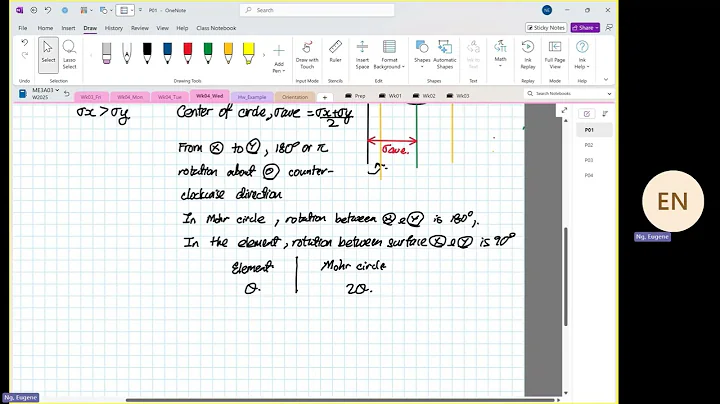 P01 - OneNote
Search
NE
File
Home
Insert
Draw
History
Review
View
Help
Class Notebook
Sticky Notes
Share
Select
Lasso Select
Add Pen
Draw with Touch
Ruler
Insert Space
Format Background
Shapes
Automatic Shapes
Math
Ink Help
Full Page View
Undo
Selection
Drawing Tools
Input Mode
Stencils
Insert
Edit
Shapes
Help
View
ME3A03_F
W2025
Wk04_Fri
Wk04_Mon
Wk04_Tue
Wk04_Wed
Hw_Example
Orientation
Prep
Wk01
Wk02
Wk03
Search Notebooks
P01
P02
P03
P04
σx > σy
Center of circle, σave = σx+σy/2
σave.
From Ⓧ to Ⓨ, 180° or π
rotation about Ⓞ counter-
clockwise direction
In Mohr circle, rotation between Ⓧ & Ⓨ is 180°,
In the element, rotation between surface Ⓧ & Ⓨ is 90°
Element | Mohr circle
θ. | 2θ.
EN
Ng, Eugene
Ng, Eugene